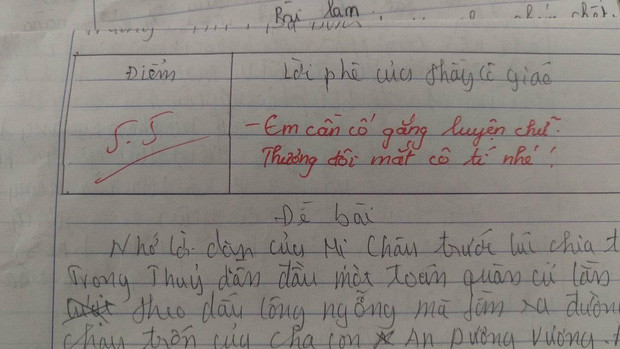 Bài làm
Điểm
Lời phê của thầy cô giáo
5.5
- Em cần cố gắng luyện chữ.
Thương đôi mắt cô tí nhé!
Đề bài
Nhớ lời dặn của Mị Châu trước lúc chia t
Trọng Thuỷ dẫn đầu một toán quân cứ lần
theo dấu lông ngỗng mà tìm ra đường
chạy trốn của cha con An Dương Vương.